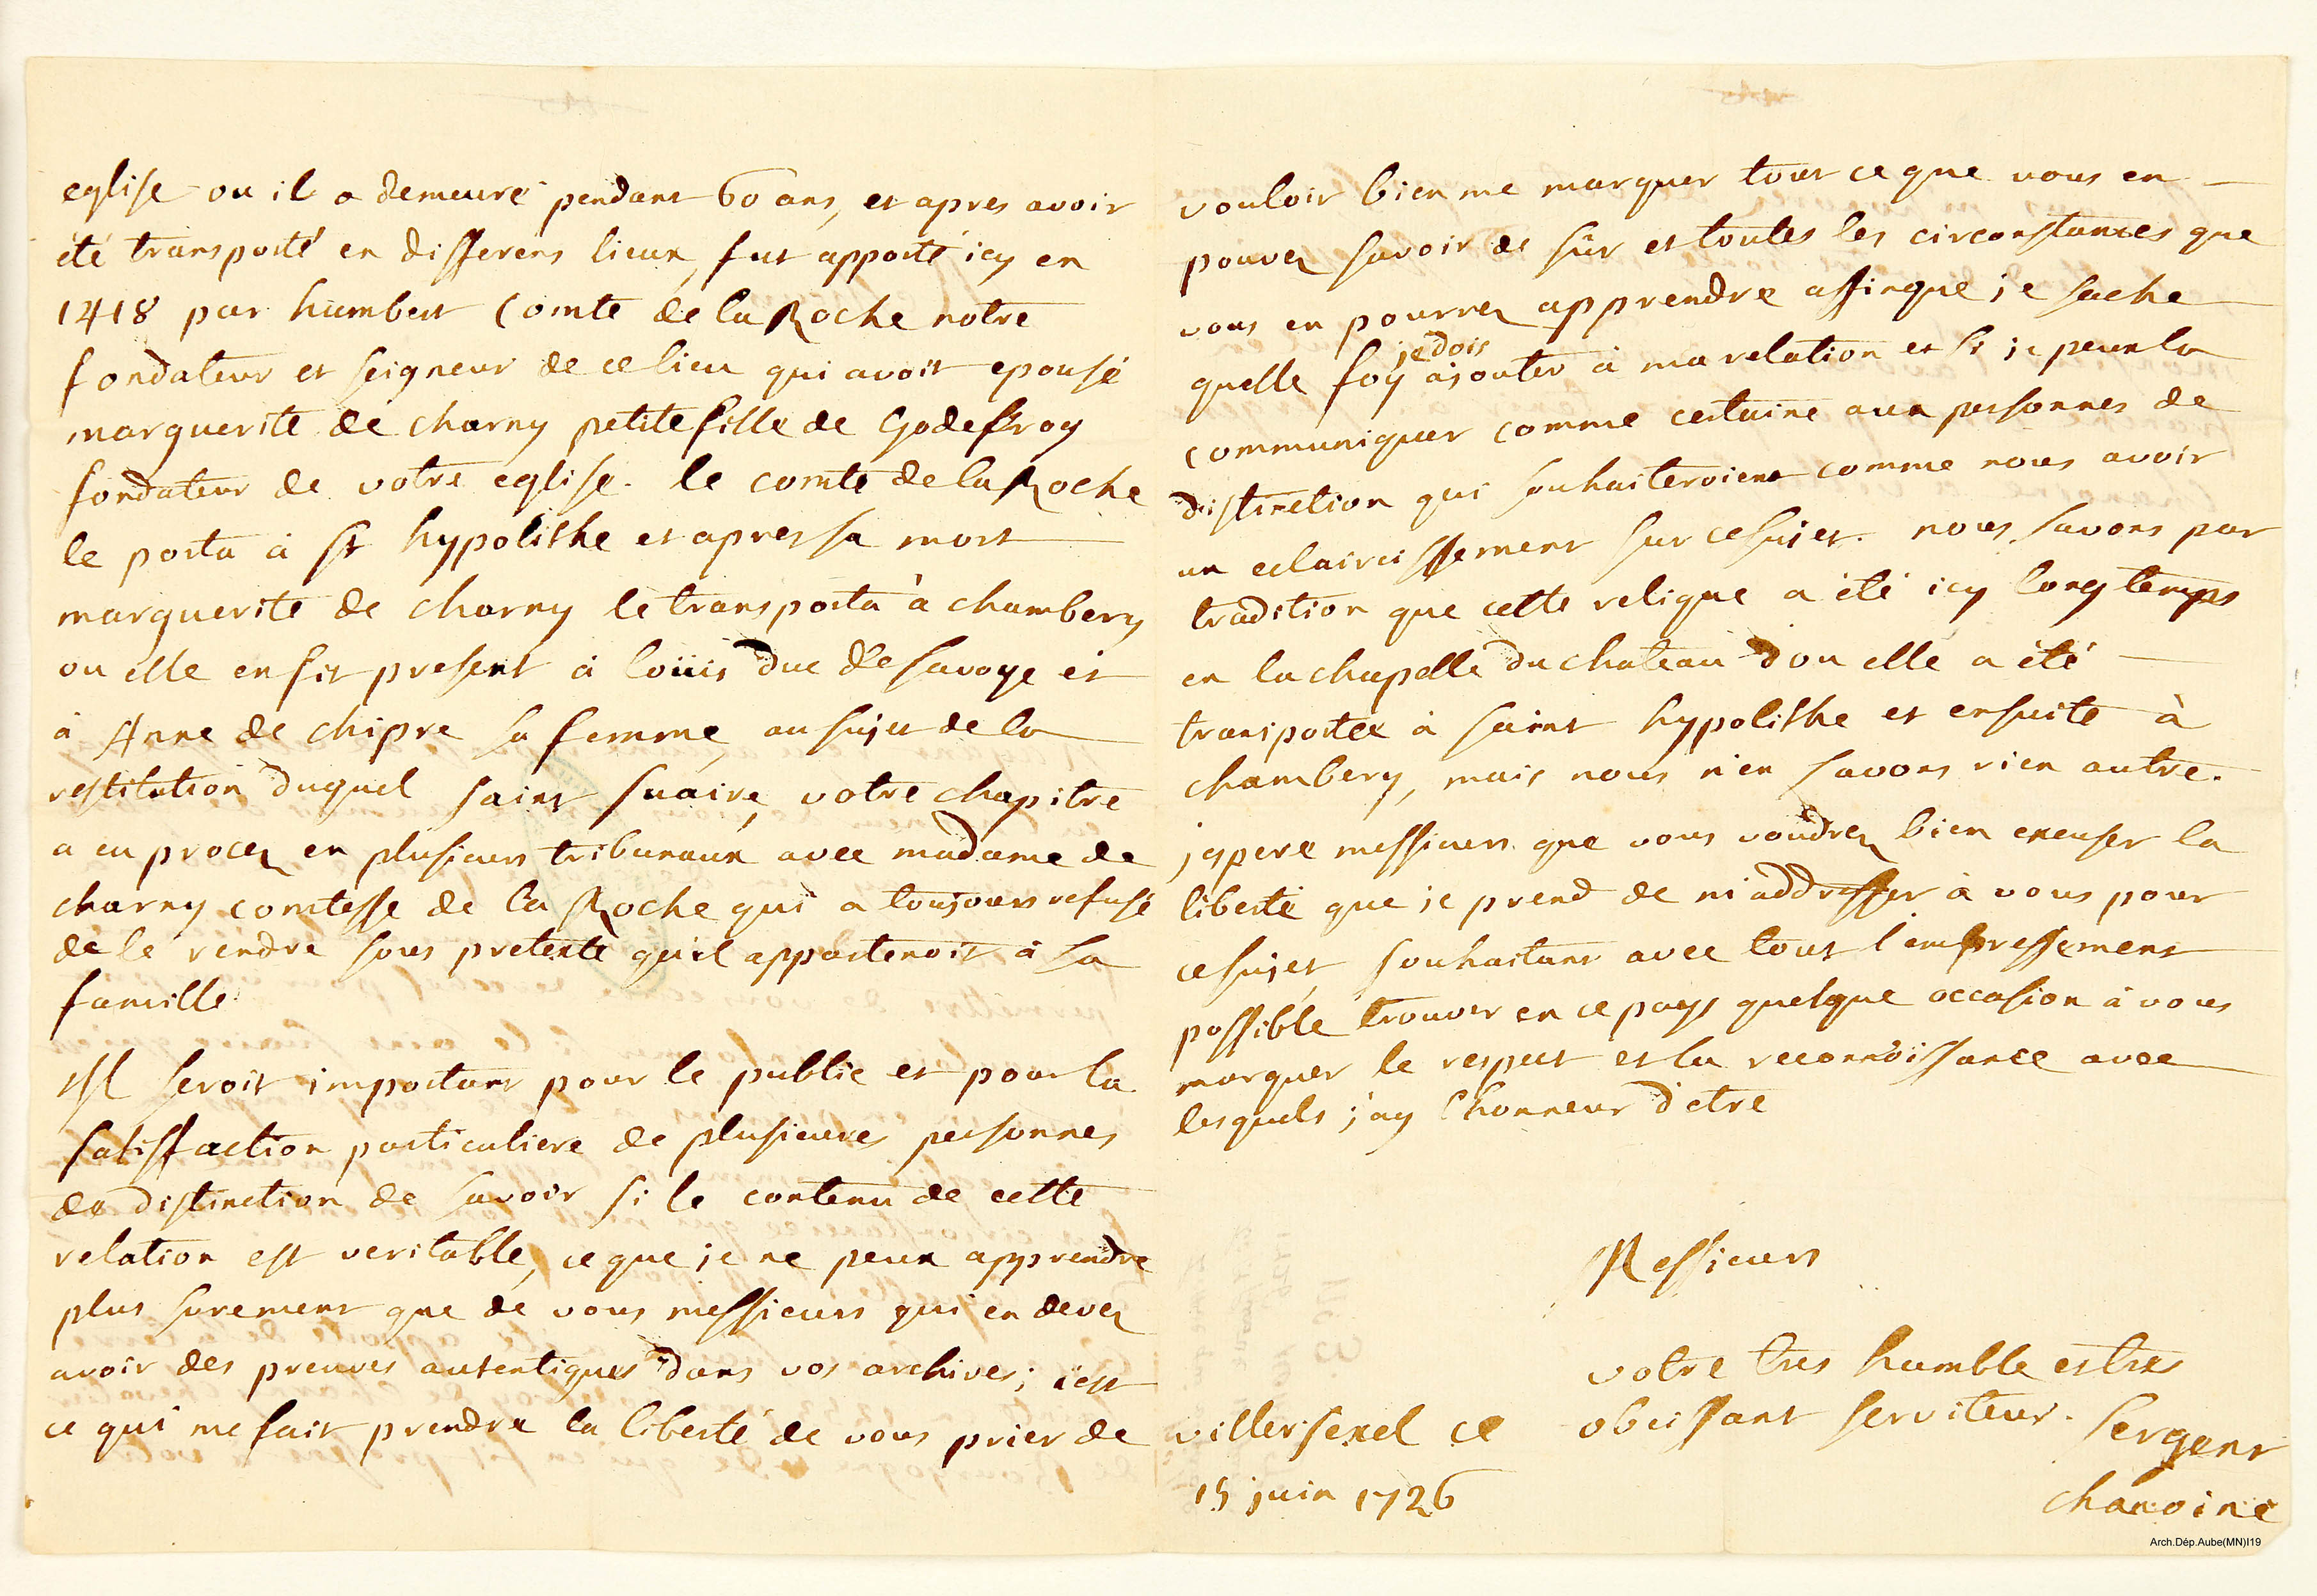 eglise ou il a demeuré pendant 60 ans, et apres avoir
été transporté en differens lieux, fut apporté icy en
1418 par humbert Comte de la Roche notre
fondateur et seigneur de ce lieu qui avoit epousé
marguerite de charny petite fille de Godefroy
fondateur de votre eglise. le comte de la Roche
le porta à st hypolithe et apres sa mort
marguerite de charny le transporta à chambery
ou elle en fit present à loüis duc de savoye et
à Anne de chipre sa femme, au sujet de la
restitution duquel saint suaire, votre chapitre
a eu procez en plusieurs tribunaux avec madame de
charny comtesse de la Roche qui a toujours refusé
de le rendre sous pretexte qu'il appartenoit à sa
famille
Il seroit important pour le public et pour la
satisfaction particuliere de plusieures personnes
de distinction de savoir si le contenu de cette
relation est veritable, ce que je ne peux apprendre
plus surement que de vous messieurs qui en devez
avoir des preuves autentiques dans vos archives; c'est
ce qui me fait prendre la liberté de vous prier de
vouloir bien me marquer tout ce que vous en
pouvez savoir de sûr et toutes les circonstances que
vous en pourrez apprendre affinque je sache
je dois
quelle foy ajouter à ma relation et si je peux la
communiquer comme certaine aux personnes de
distinction qui souhaiteroient comme nous avoir
un eclaircissement sur ce sujet. nous savons par
tradition que cette relique a été icy longtemps
en la chapelle du chateau d'ou elle a été
transportée à saint hypolithe et ensuite à
chambery, mais nous n'en savons rien autre.
j'espere messieurs que vous voudrez bien excuser la
liberté que je prend de m'addresser à vous pour
ce sujet, souhaitant avec tout l'empressement
possible trouver en ce pays quelque occasion à vous
marquer le respect et la reconnoissance avec
lesquels j'ay l'honneur d'etre
Messieurs
votre tres humble et tres
obeissant serviteur. Sergent
chanoine
villersexel ce
15 juin 1726
Arch.Dép.Aube(MN)I19